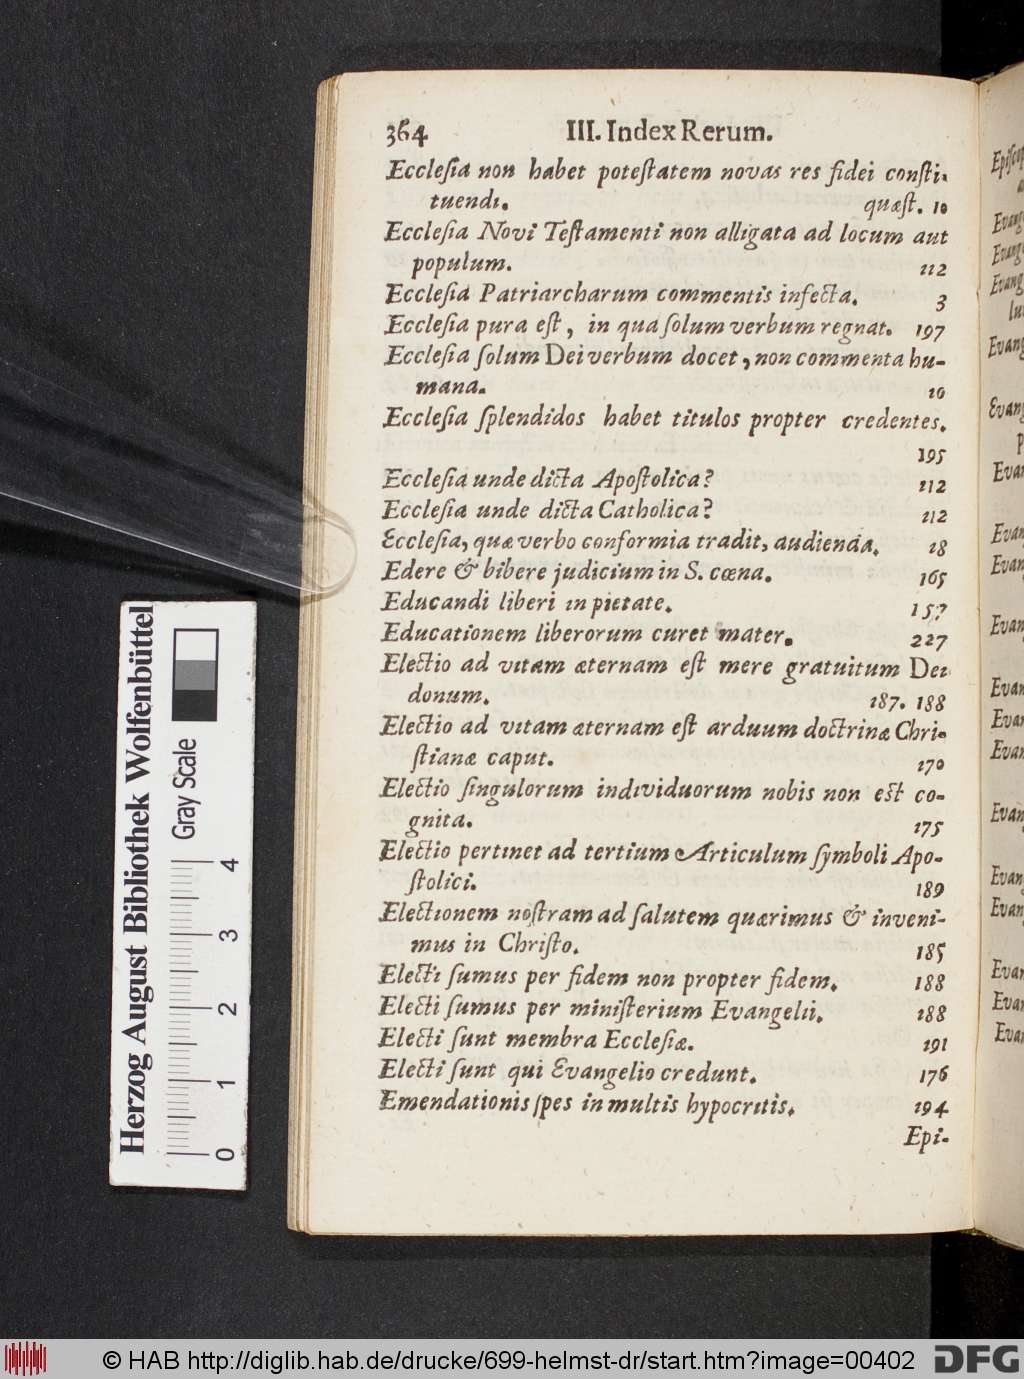 364 III. Index Rerum.
Ecclesia non habet potestatem novas res fidei consti-
tuendi. quæst. 10
Ecclesia Novi Testamenti non alligata ad locum aut
populum. 112
Ecclesia Patriarcharum commentis infecta. 3
Ecclesia pura est, in qua solum verbum regnat. 197
Ecclesia solum Dei verbum docet, non commenta hu-
mana. 10
Ecclesia splendidos habet titulos propter credentes.
195
Ecclesia unde dicta Apostolica? 112
Ecclesia unde dicta Catholica? 112
Ecclesia, quæ verbo conformia tradit, audienda. 18
Edere & bibere judicium in S. cœna. 165
Educandi liberi in pietate. 157
Educationem liberorum curet mater. 227
Electio ad vitam æternam est mere gratuitum Dei
donum. 187. 188
Electio ad vitam æternam est arduum doctrinæ Chri-
stianæ caput. 170
Electio singulorum individuorum nobis non est co-
gnita. 175
Electio pertinet ad tertium Articulum symboli Apo-
stolici. 189
Electionem nostram ad salutem quærimus & inveni-
mus in Christo. 185
Electi sumus per fidem non propter fidem. 188
Electi sumus per ministerium Evangelii. 188
Electi sunt membra Ecclesiæ. 191
Electi sunt qui Evangelio credunt. 176
Emendationis spes in multis hypocritis. 194
Epi-
Herzog August Bibliothek Wolfenbüttel
Gray Scale
0 1 2 3 4
© HAB http://diglib.hab.de/drucke/699-helmst-dr/start.htm?image=00402
DFG